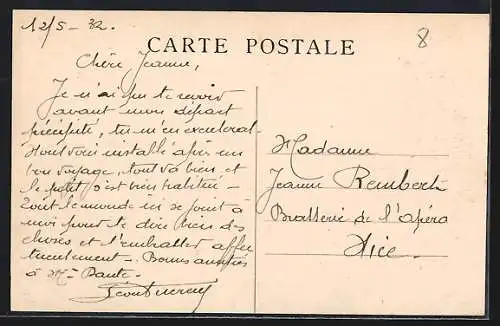 12/5-32.
8
CARTE POSTALE
Chère Jeanne,
Je n'ai pu te revoir
avant mon départ
précipité, tu m'en excuseras.
Nous voici installés après un
bon voyage, tout va bien, et
le petit s'est bien habitué -
Tout le monde se joint à
moi pour te dire bien des
choses et t'embrasser affec
tueusement. Bonnes amitiés
à Mme Dante.
Madame
Jeanne Rembert
Brasserie de l'apéro
Nice.